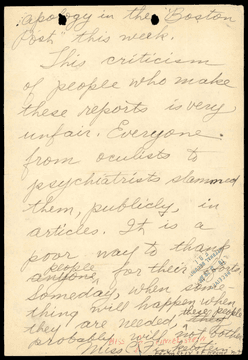 apology in the "Boston
Post" this week.
This criticism
of people who make
these reports is very
unfair. Everyone
from oculists to
psychiatrists slammed
them, publicly, in
articles. It is a
poor way to thank
people
anyone for their
someday, when some-
thing will happen when
they are needed these people
probably will not bother
Miss